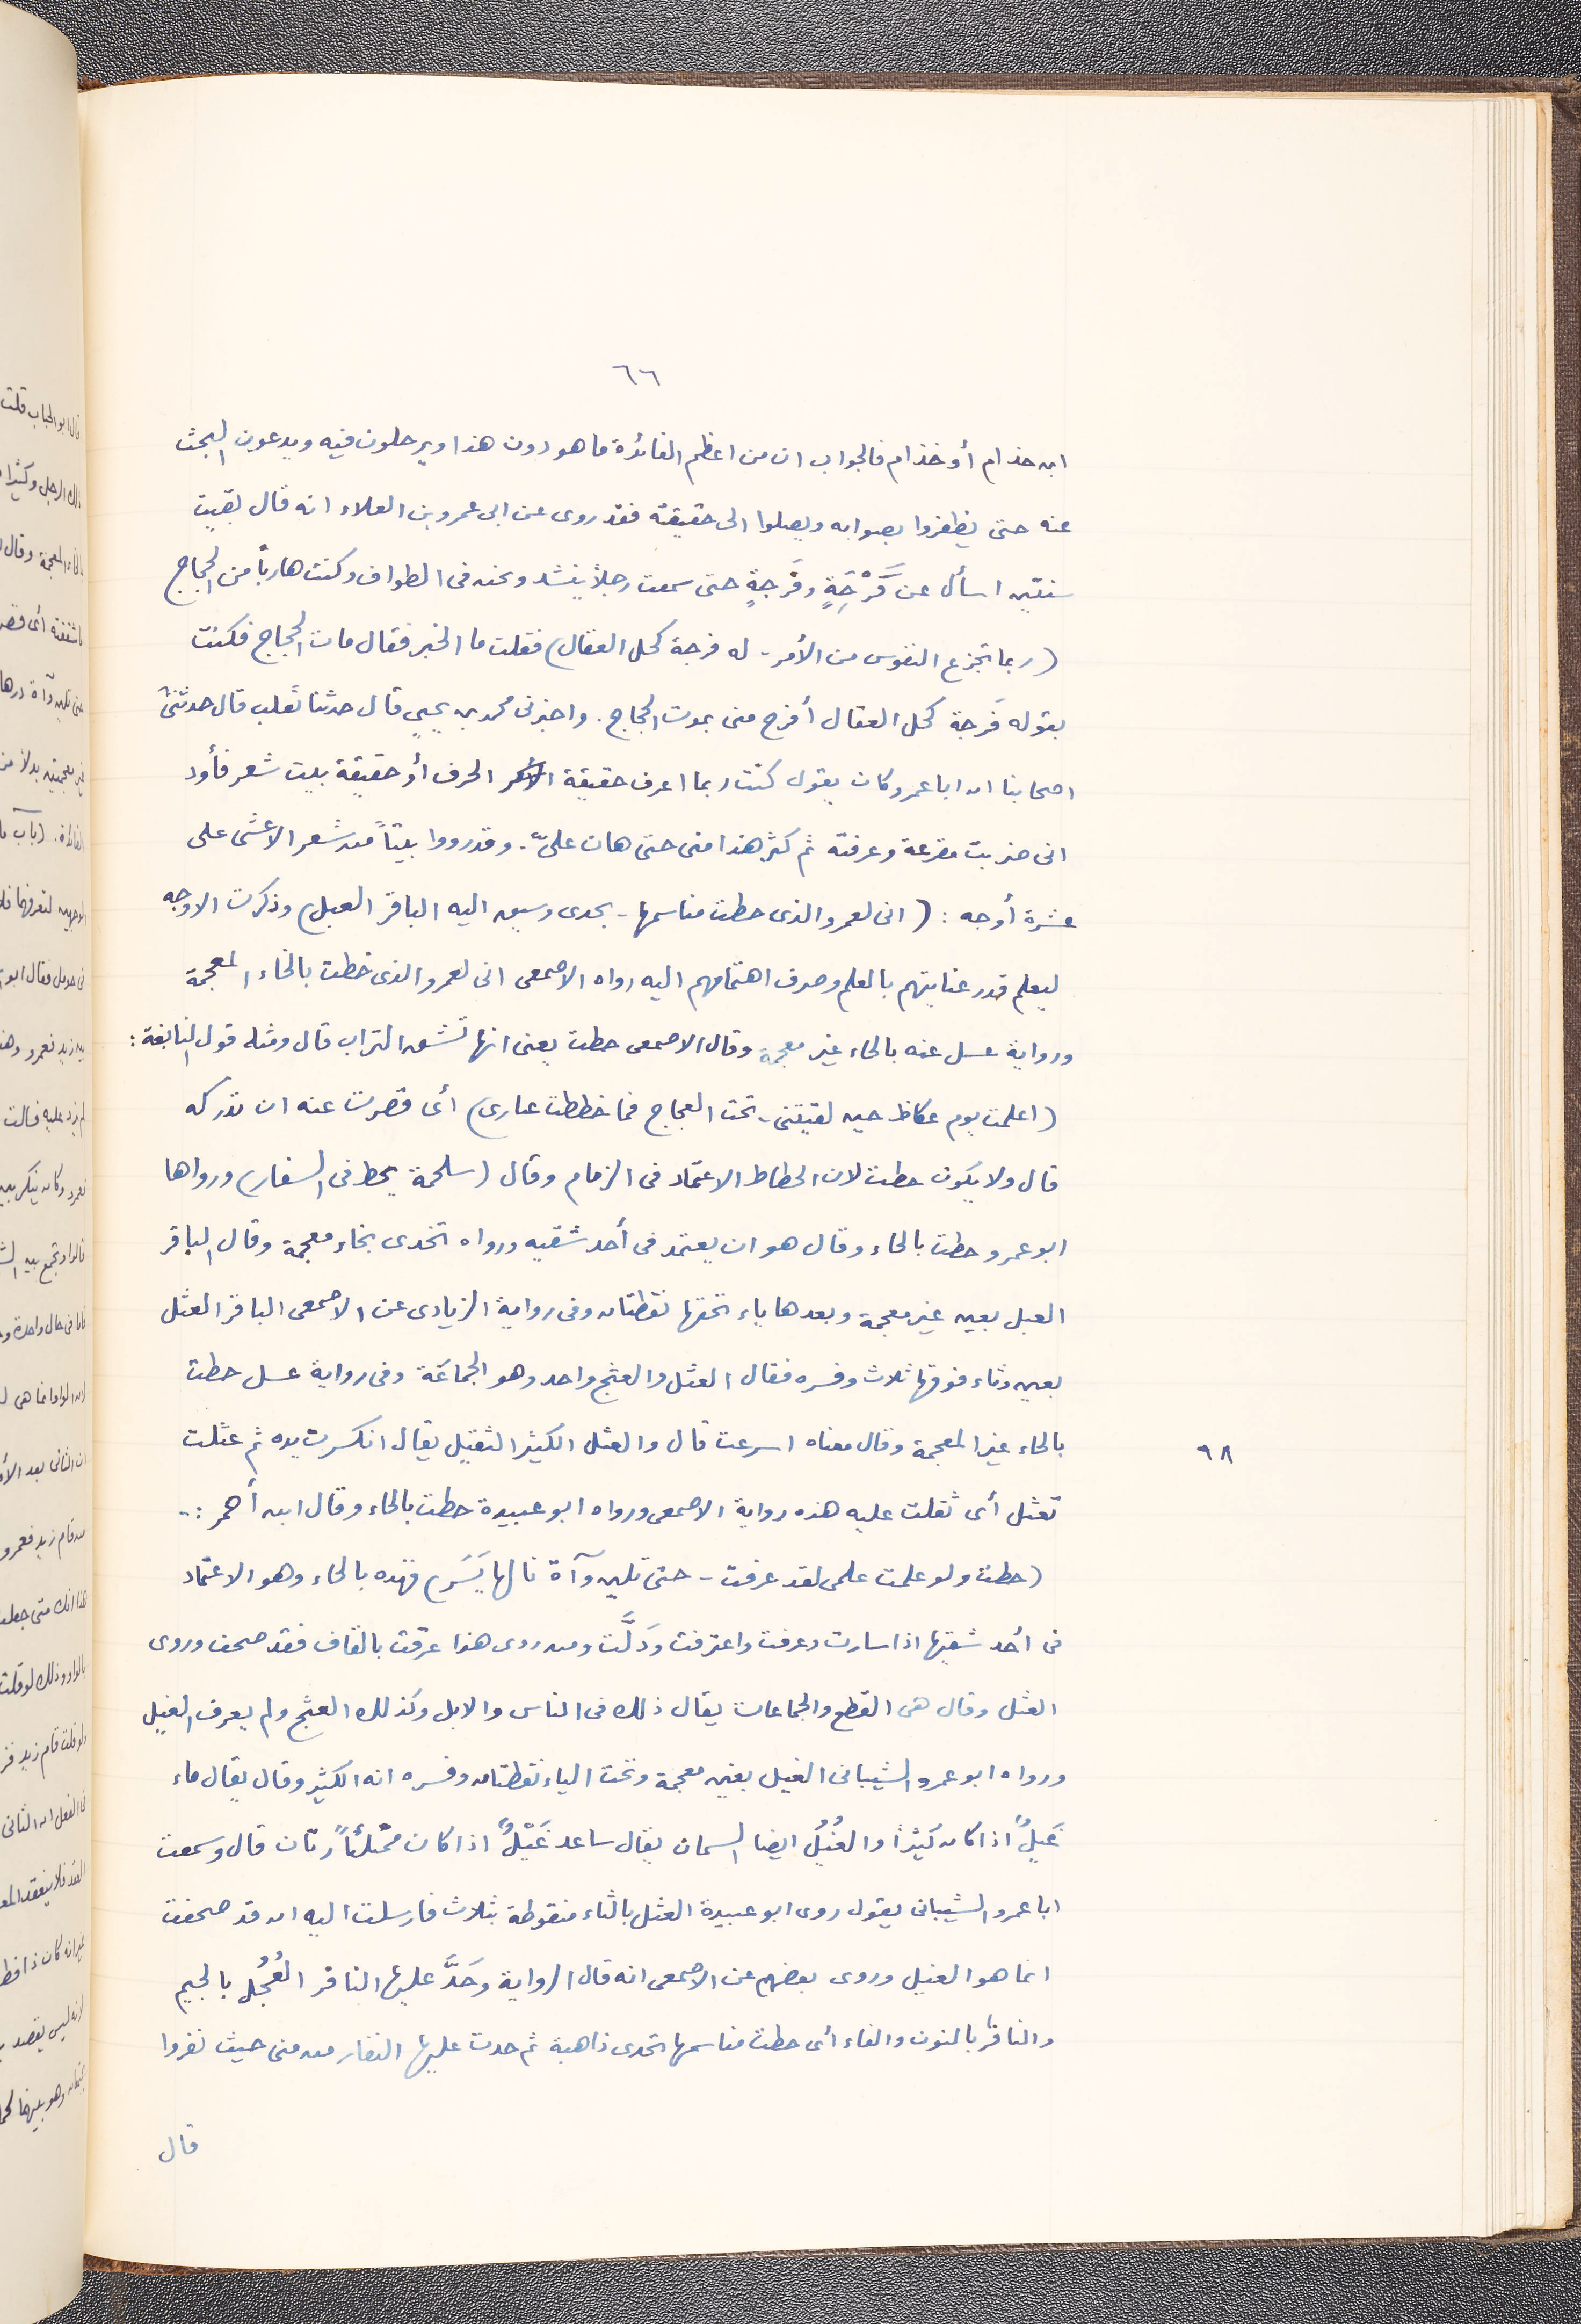 ٦٦
ابن حذام أو خذام فالجواب ان من اعظم الفائدة ما هو دون هذا ويرحلون فيه ويدعون البحث
عنه حتى يظفروا بصوابه ويصلوا الى حقيقته فقد روى عن ابى عمرو بن العلاء انه قال بقيت
سنتين اسأل عن فَرْجَةٍ وفُرْجةٍ حتى سمعت رجلاً ينشد ونحن فى الطواف وكنت هارباً من الحجاج
(ربما تجزع النفوس من الأمر - له فرجة كحل العقال) فقلت ما الخبر فقال مات الحجاج فكنت
بقوله فَرجة كحل العقال أفرح منى بموت الحجاج. واخبرنى محمد بن يحيى قال حدثنا ثعلب قال حدثنى
اصحابنا ان ابا عمرو كان يقول كنت ربما اعرف حقيقة الحرف أو حقيقة بيت شعر فأود
انى ضربت مقرعة وعرفته ثم كثر هذا منى حتى هان علىّ. وقد رووا بيتاً من شعر الاعشى على
عشرة أوجه : (انى لعمرو الذى حطت مناسمها - يحدى وسيق اليه الباقر العيل) وذكرت الاوجه
ليعلم قدر عنايتهم بالعلم وصرف اهتمامهم اليه رواه الاصمعى انى لعمرو الذى خطت بالخاء المعجمة
ورواية عسل عنه بالحاء غير معجمة وقال الاصمعى خطت يعنى انها تشق التراب قال ومثله قول النابغة :
(اعلمت يوم عكاظ حين لقيتنى - تحت العجاج فما خططت غبارى) أى قصرت عنه ان تدركه
قال ولا يكون حطت لان الحطاط الاعتماد فى الزمام وقال (سلجمة يحط فى السفار) ورواها
ابو عمرو حطت بالحاء وقال هو ان يعتمد فى أحد شقيه ورواه تخدى بخاء معجمة وقال الباقر
العيل بعين غير معجمة وبعدها ياء تحتها نقطتان وفى رواية الزيادى عن الاصمعى الباقر العثل
بعين وثاء فوقها ثلاث وفسره فقال العثل والعثج واحد وهو الجماعة وفى رواية عسل حطت
بالحاء غير المعجمة وقال معناه اسرعت قال والعثل الكثير الثقيل يقال انكسرت يده ثم عثلت
٩٨
تعثل أى ثقلت عليه هذه رواية الاصمعى ورواه ابو عبيدة حطت بالحاء وقال ابن أحمر :-
(حطت ولو علمت علمى لقد عرفت - حتى تلين وآة نالها يَسَر) فهذه بالحاء وهو الاعتماد
فى احد شقيها اذا سارت وعرفت واعترفت وذلَّت ومن روى هذا عرقت بالقاف فقد صحف وروى
العثل وقال هى القطع والجماعات يقال ذلك فى الناس والابل وكذلك العثج ولم يعرف الغيل
ورواه ابو عمرو الشيبانى الغيل بغين معجمة وتحت الياء نقطتان وفسره انه الكثير وقال يقال ماء
غَيلٌ اذا كان كثيراً والغُيُلُ ايضا السمان يقال ساعد غَيْلٌ اذا كان ممتلئاً ريّان قال وسمعت
ابا عمرو الشيبانى يقول روى ابو عبيدة العثل بالثاء منقوطة بثلاث فارسلت اليه ان قد صحفت
انما هو الغيل وروى بعضهم عن الاصمعى انه قال الرواية وحَدَّ عليها النافر العُجُل بالجيم
والنافر بالنون والفاء أى حطت مناسمها تحدى ذاهبة ثم حدت عليها النفار من منى حيث نفروا
قال